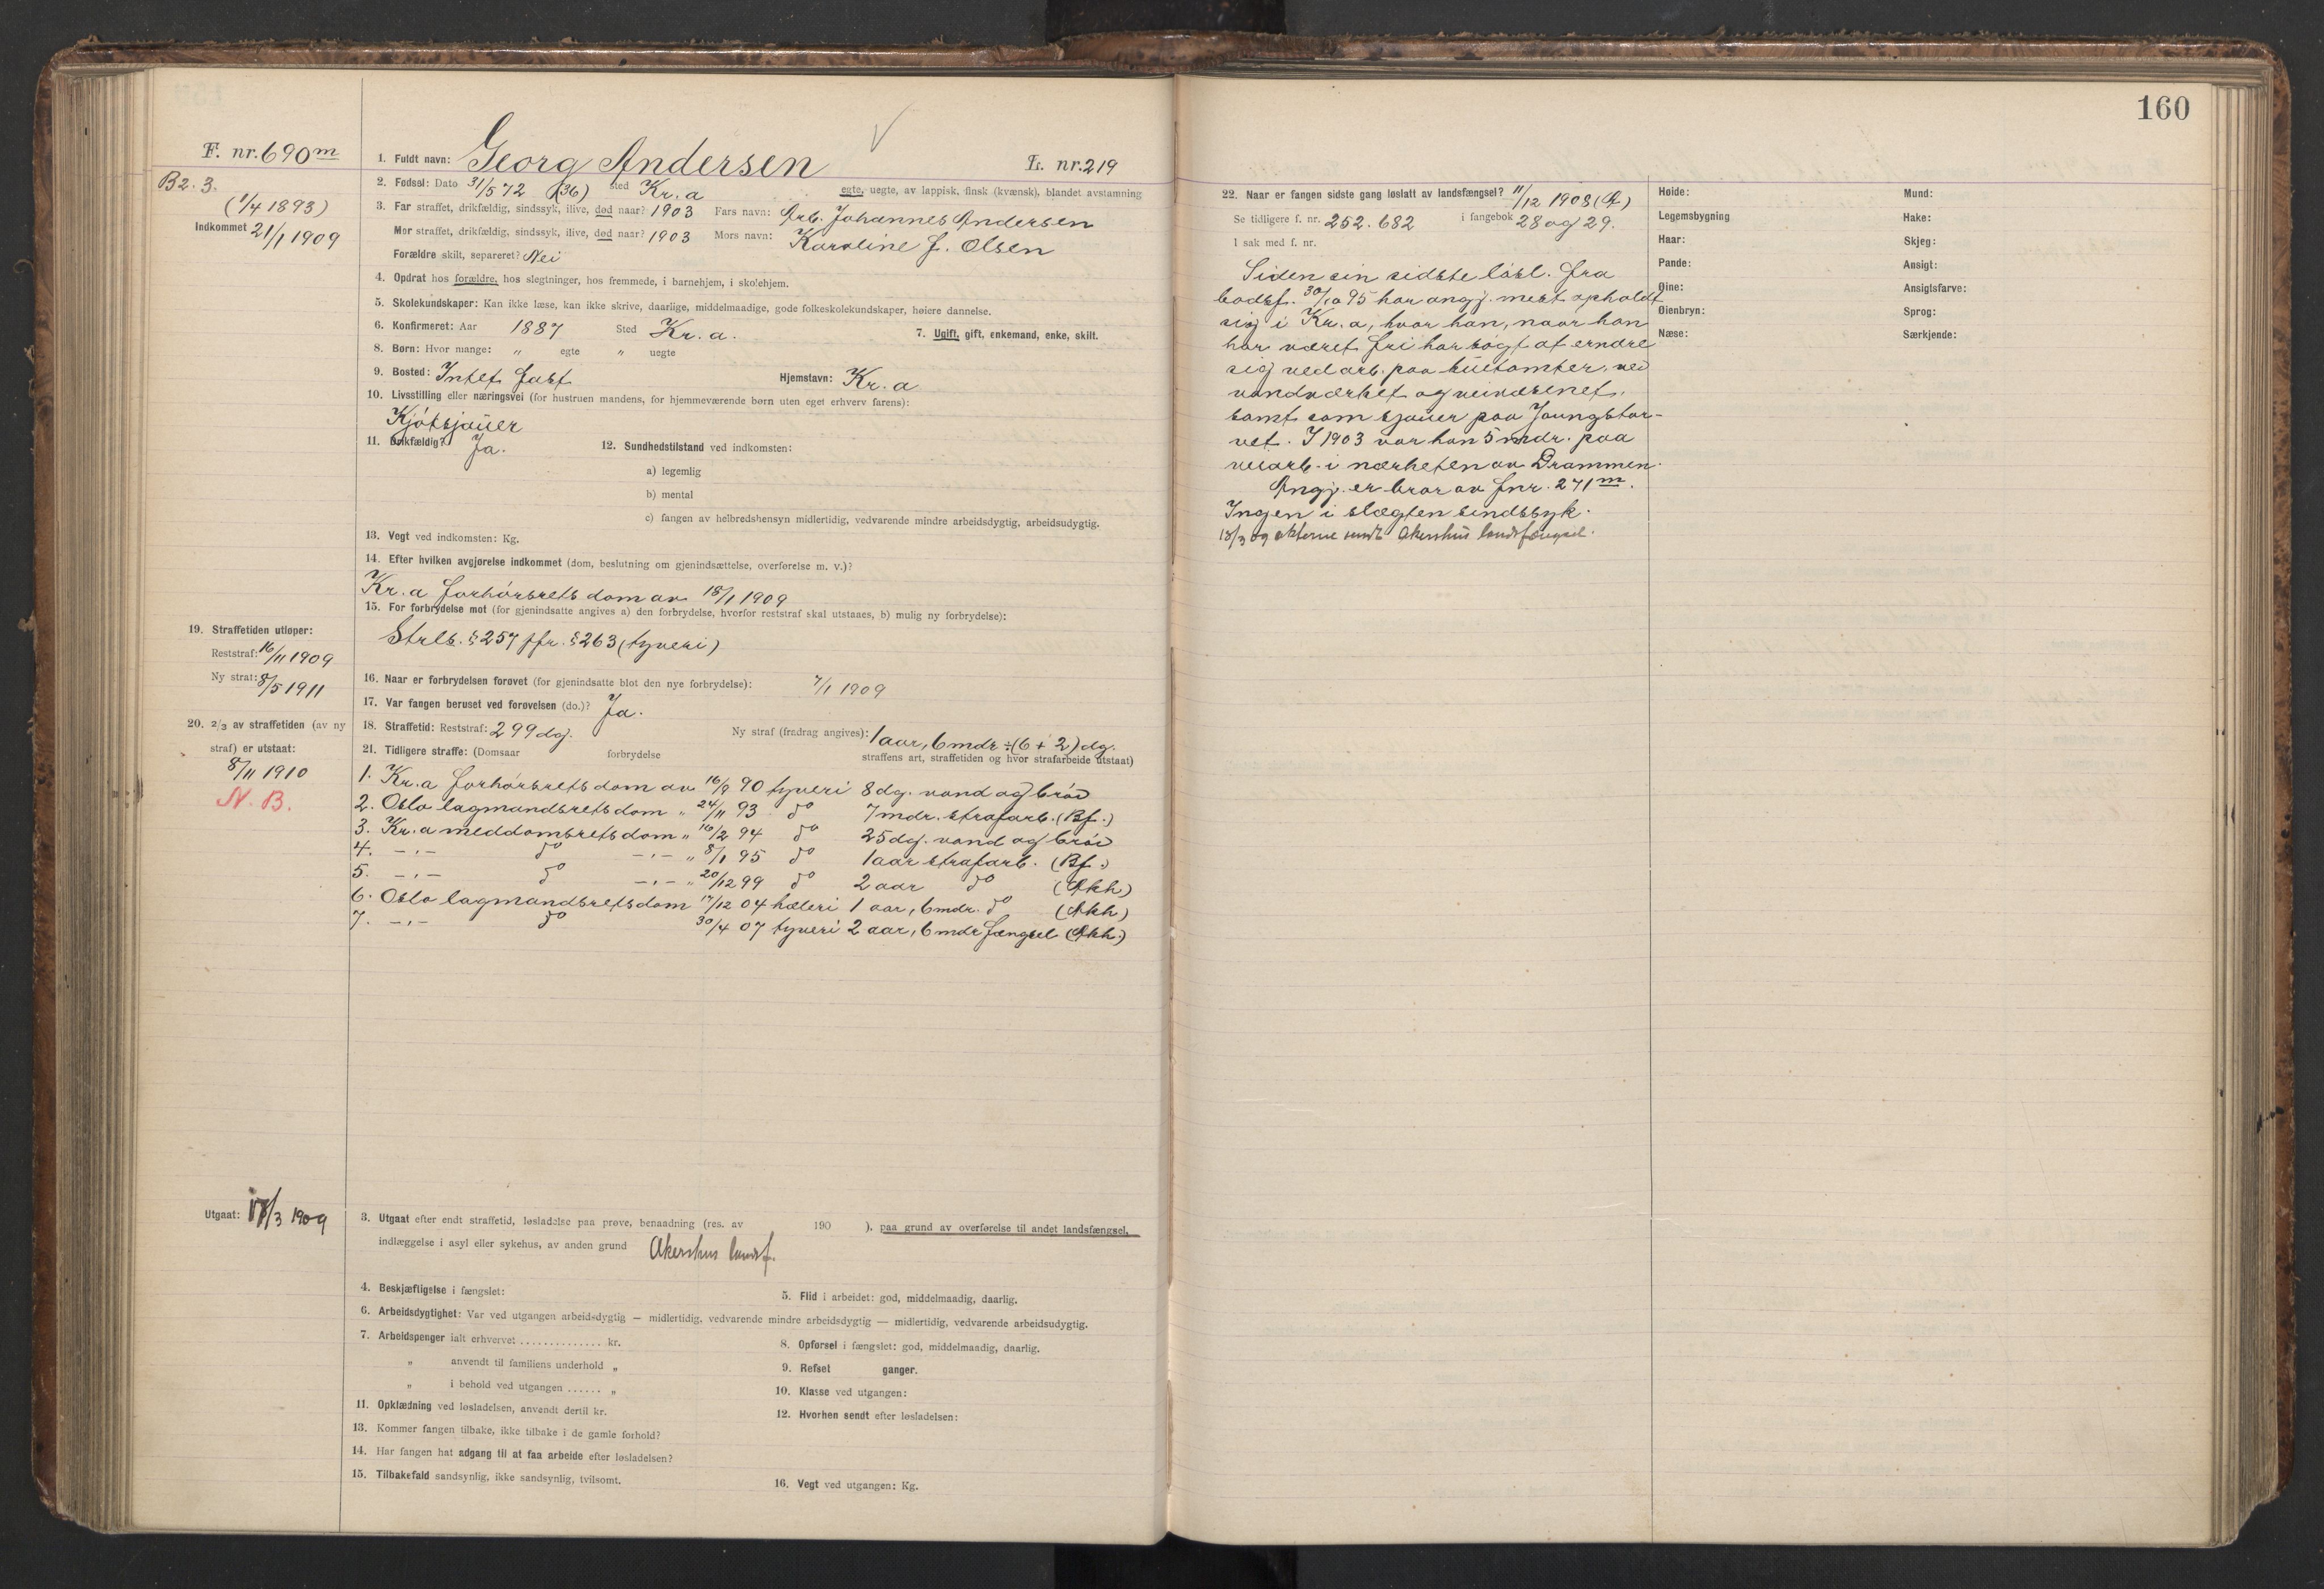 160
F. nr. 690 m
B 2. 3.
(1/4 1893)
Indkommet 21/1 1909
1. Fuldt navn: Georg Andersen
L. nr. 219
2. Fødsel: Dato 31/5 72 (36) sted Kr.a egte, uegte, av lappisk, finsk (kvænsk), blandet avstamning
3. Far straffet, drikfældig, sindssyk, ilive, død naar? 1903 Fars navn: Arb. Johannes Andersen
Mor straffet, drikfældig, sindssyk, ilive, død naar? 1903 Mors navn: Karoline J. Olsen
Forældre skilt, separeret? Nei
4. Opdrat hos forældre, hos slegtninger, hos fremmede, i barnehjem, i skolehjem.
5. Skolekundskaper: Kan ikke læse, kan ikke skrive, daarlige, middelmaadige, gode folkeskolekundskaper, høiere dannelse.
6. Konfirmeret: Aar 1887 Sted Kr.a. 7. Ugift, gift, enkemand, enke, skilt.
8. Børn: Hvor mange: " egte " uegte
9. Bosted: Intet fast Hjemstavn: Kr.a
10. Livsstilling eller næringsvei (for hustruen mandens, for hjemmeværende børn uten eget erhverv farens):
Kjøtsjauer
11. Drikfældig? Ja. 12. Sundhedstilstand ved indkomsten:
a) legemlig
b) mental
c) fangen av helbredshensyn midlertidig, vedvarende mindre arbeidsdygtig, arbeidsudygtig.
13. Vegt ved indkomsten: Kg.
14. Efter hvilken avgjørelse indkommet (dom, beslutning om gjenindsættelse, overførelse m. v.)?
Kr.a forhørsrets dom av 18/1 1909
15. For forbrydelse mot (for gjenindsatte angives a) den forbrydelse, hvorfor reststraf skal utstaaes, b) mulig ny forbrydelse):
Strlb. § 257 jfr. § 263 (tyveri)
16. Naar er forbrydelsen forøvet (for gjenindsatte blot den nye forbrydelse): 7/1 1909
17. Var fangen beruset ved forøvelsen (do.)? Ja.
18. Straffetid: Reststraf: 299 dg. Ny straf (fradrag angives): 1 aar, 6 mdr ÷ (6 + 2) dg.
19. Straffetiden utløper:
Reststraf: 16/11 1909
Ny straf: 8/5 1911
20. 2/3 av straffetiden (av ny
straf) er utstaat:
8/11 1910
N. B.
21. Tidligere straffe: (Domsaar forbrydelse straffens art, straffetiden og hvor strafarbeide utstaat)
1. Kr.a forhørsrets dom av 16/9 90 tyveri 8 dg. vand og brød
2. Oslo lagmandsrets dom " 24/11 93 do 7 mdr. strafarb. (Bf.)
3. Kr.a meddomsrets dom " 16/2 94 do 25 dg. vand og brød
4. -"- do -"- " 8/1 95 do 1 aar strafarb. (Bf.)
5. -"- do -"- " 20/12 99 do 2 aar do (Akh)
6. Oslo lagmandsrets dom 17/12 04 hæleri 1 aar, 6 mdr. do (Akh)
7. -"- do 30/4 07 tyveri 2 aar, 6 mdr fængsel (Akh.)
Utgaat: 18/3 1909
3. Utgaat efter endt straffetid, løsladelse paa prøve, benaadning (res. av 190 ), paa grund av overførelse til andet landsfængsel,
indlæggelse i asyl eller sykehus, av anden grund Akershus landsf.
4. Beskjæftigelse i fængslet: 5. Flid i arbeidet: god, middelmaadig, daarlig.
6. Arbeidsdygtighet: Var ved utgangen arbeidsdygtig — midlertidig, vedvarende mindre arbeidsdygtig — midlertidig, vedvarende arbeidsudygtig.
7. Arbeidspenger ialt erhvervet .............. kr. 8. Opførsel i fængslet: god, middelmaadig, daarlig.
" anvendt til familiens underhold " 9. Refset ganger.
" i behold ved utgangen ...... " 10. Klasse ved utgangen:
11. Opklædning ved løsladelsen, anvendt dertil kr. 12. Hvorhen sendt efter løsladelsen:
13. Kommer fangen tilbake, ikke tilbake i de gamle forhold?
14. Har fangen hat adgang til at faa arbeide efter løsladelsen?
15. Tilbakefald sandsynlig, ikke sandsynlig, tvilsomt. 16. Vegt ved utgangen: Kg.
22. Naar er fangen sidste gang løslatt av landsfængsel? 11/12 1908 (A)
Se tidligere f. nr. 252. 682 i fangebok 28 og 29.
I sak med f. nr.
Siden sin sidste løsl. fra
bodsf. 30/10 95 har angj. mest opholdt
sig i Kr.a, hvor han, naar han
har været fri har søgt at ernære
sig ved arb. paa bustomter, ved
vandværket og veivæsenet,
samt som sjauer paa Youngstor-
vet. I 1903 var han 5 mdr. paa
veiarb. i nærheten av Drammen.
Angj. er bror av fnr. 271 m.
Ingen i slægten sindssyk.
18/3 09 akterne sendt Akershus landsfængsel.
Høide:
Legemsbygning
Haar:
Pande:
Øine:
Øienbryn:
Næse:
Mund:
Hake:
Skjeg:
Ansigt:
Ansigtsfarve:
Sprog:
Særkjende: